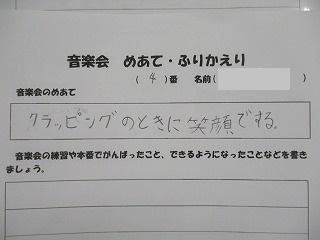 音楽会 めあて・ふりかえり
( 4 )番 名前( )
音楽会のめあて
クラッピングのときに笑顔でする。
音楽会の練習や本番でがんばったこと、できるようになったことなどを書き
ましょう。